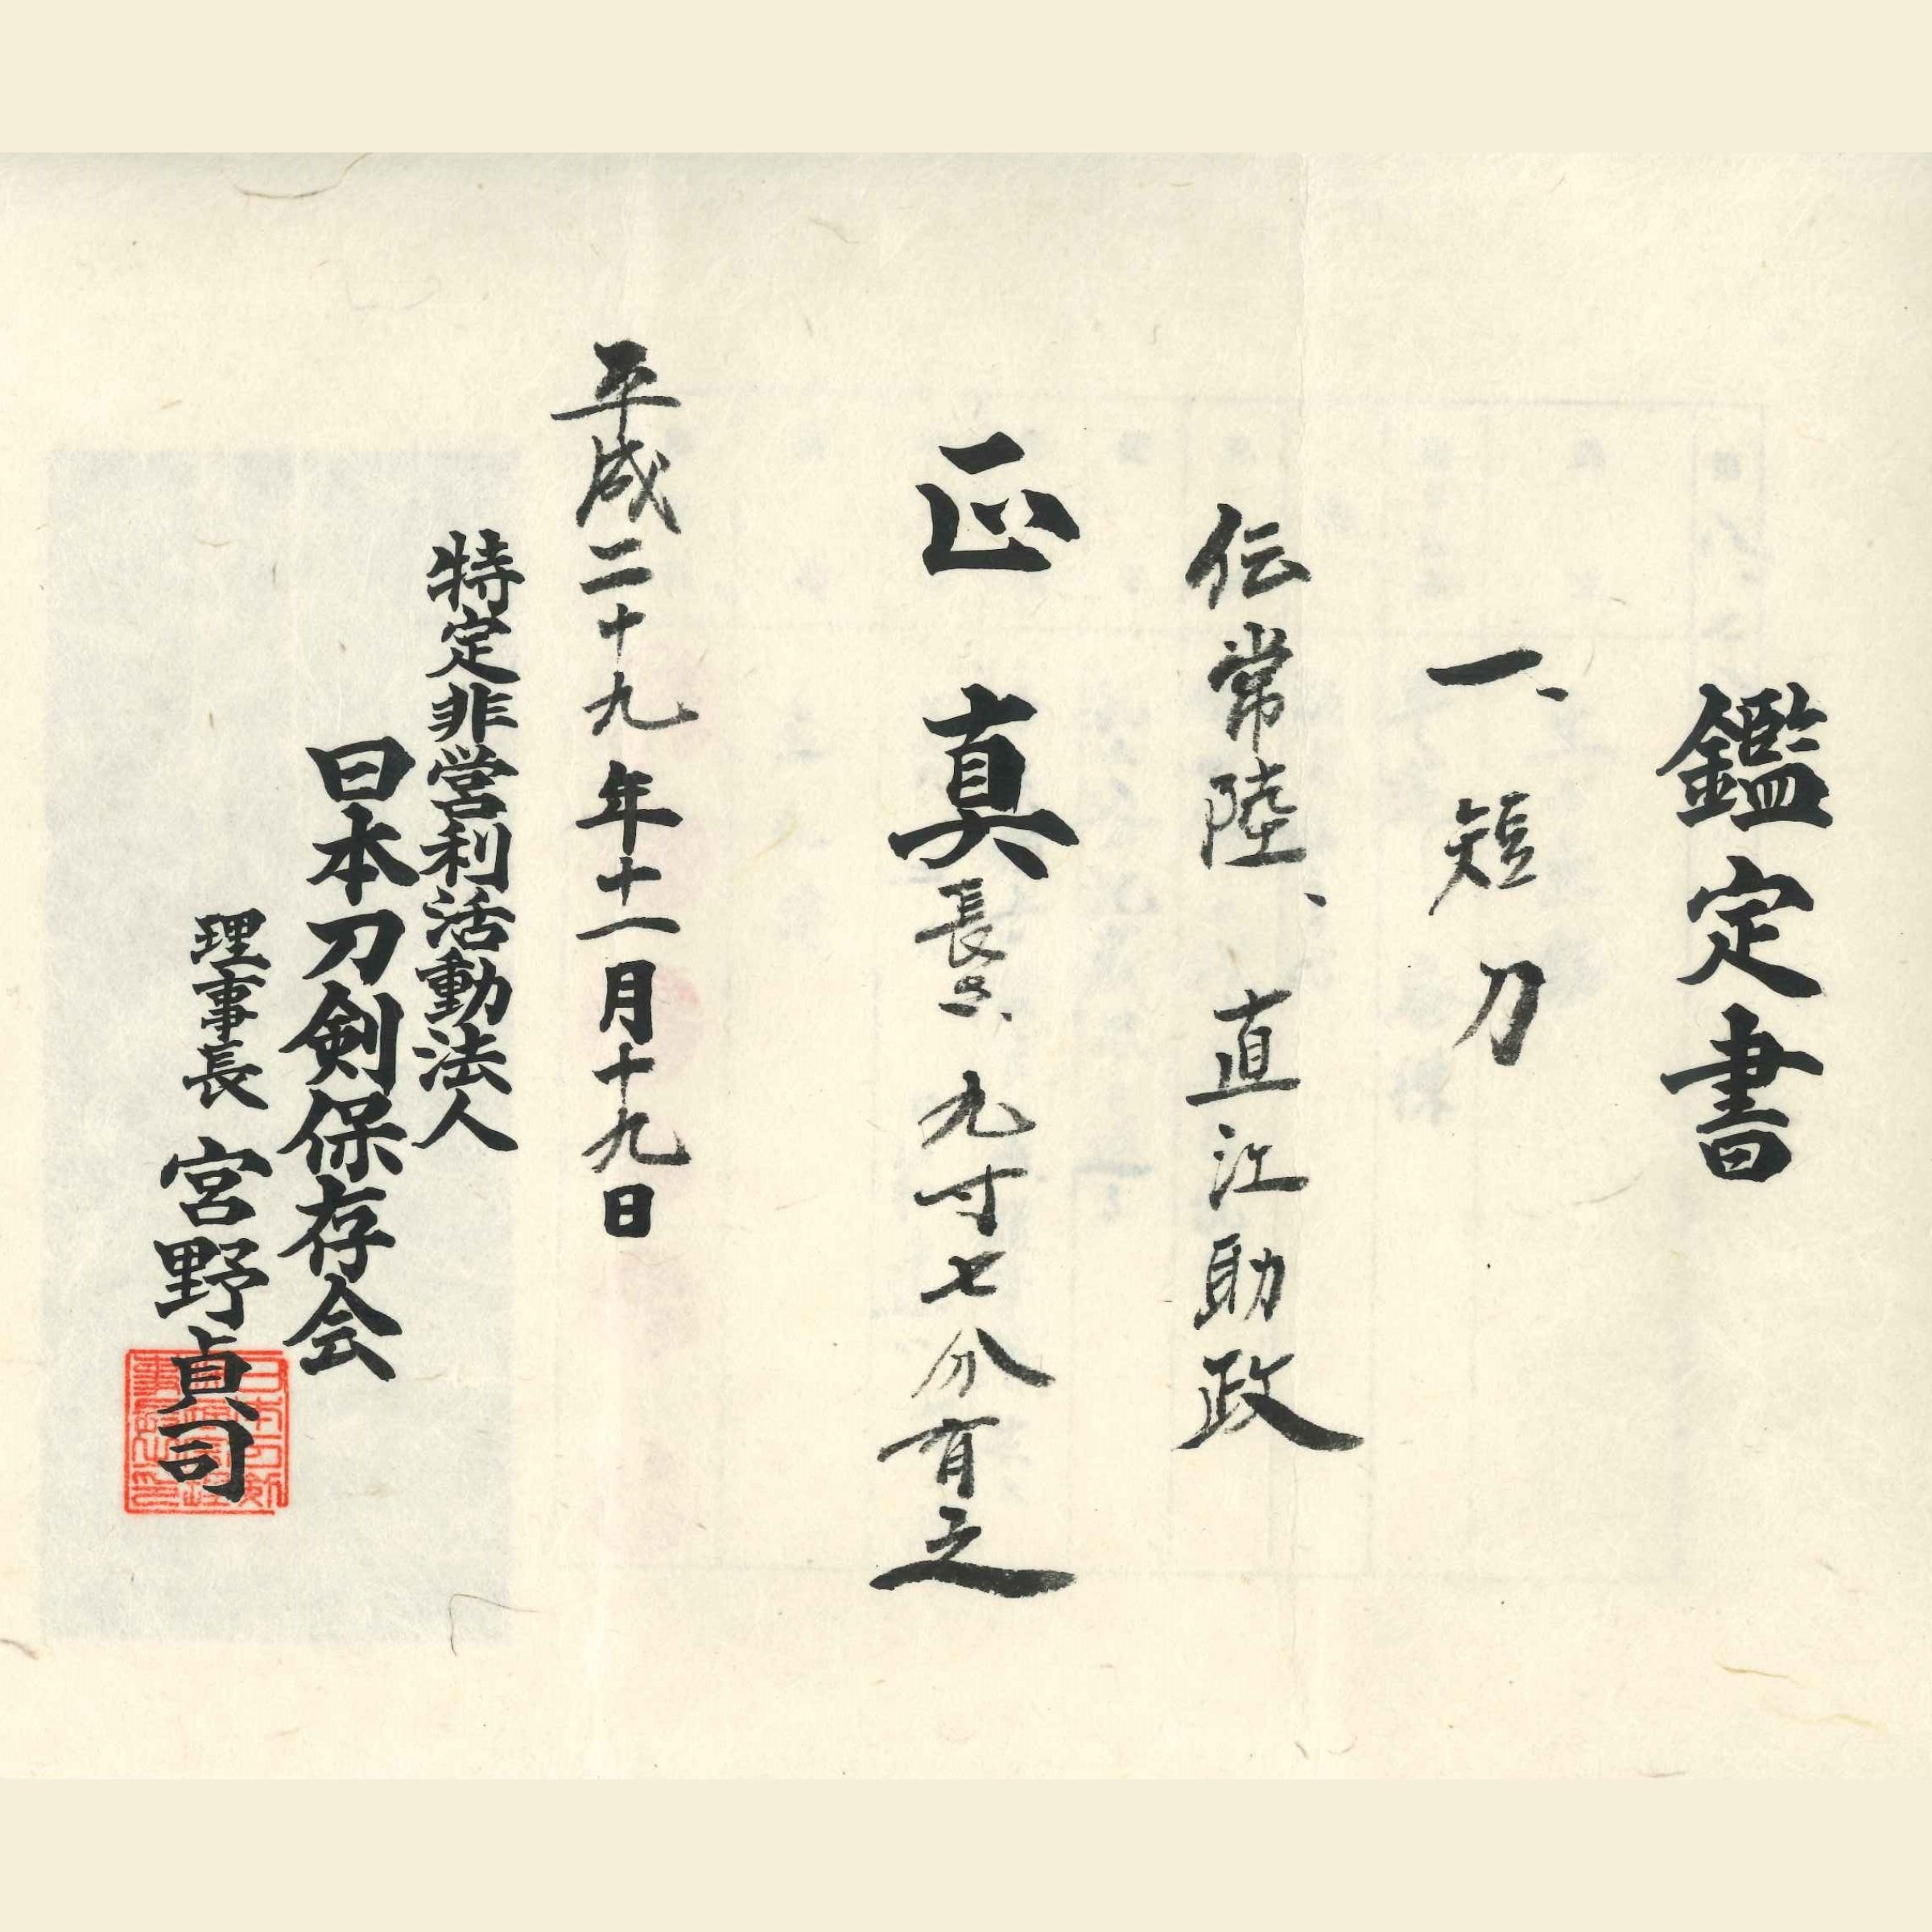 鑑定書
一、短刀
伝常陸、直江助政
正真
長さ、九寸七分有之
平成二十九年十一月十九日
特定非営利活動法人
日本刀剣保存会
理事長 宮野貞司